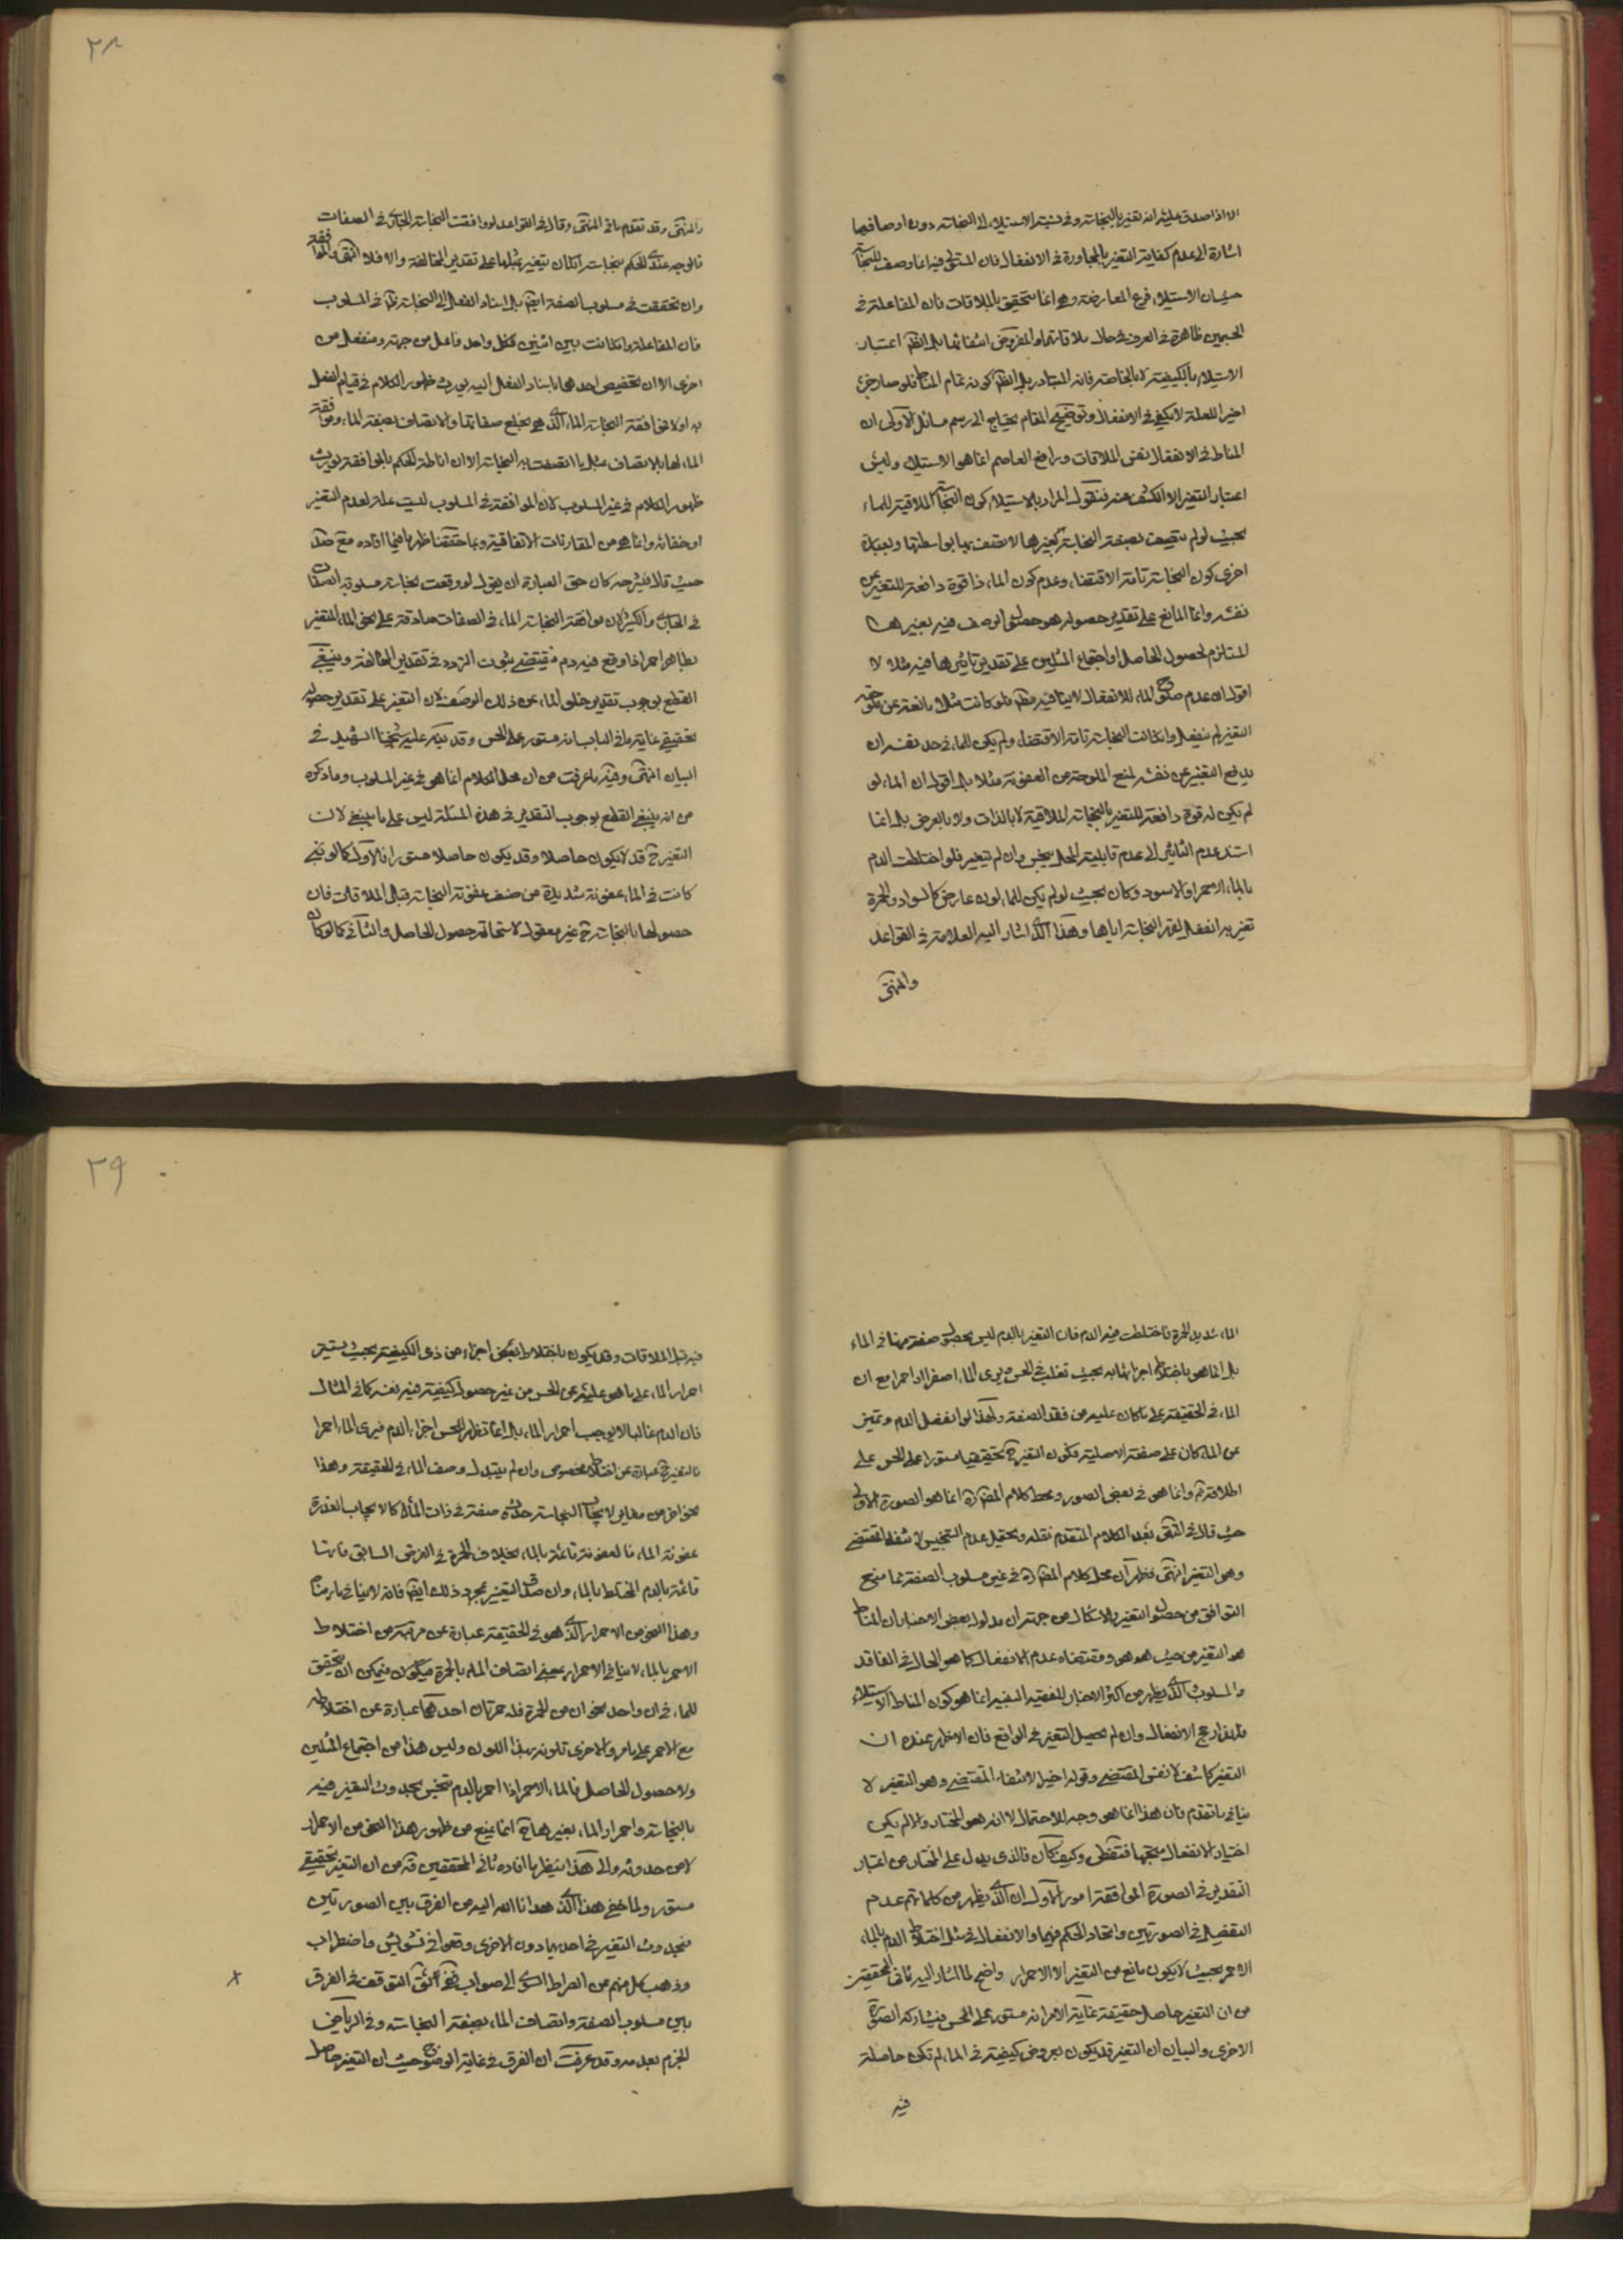 الا اذا صدق عليه انه تغير بالنجاسة وفي نسبة الاستيلاء الى النجاسة دون اوصافها
اشارة الى عدم كفاية التغير بالمجاورة في الانفعال فان المستولي فيه انما وصف للنجاسة
حيث ان الاستيلاء فرع المعارضة وهي انما تتحقق بالملاقات فان المفاعلة في
الجسمين ظاهرة في العرف في حال ملاقاتهما والمفروض انتفائها بل الظ اعتبار
الاستيلاء بالكيفية لا بالخاصة فانه المتبادر بل الظ كونه تمام المناط فلو صار جزء
اخيرا للعلة لا يكفي في الانفعال وتوضيح المقام يحتاج الى رسم مسائل الاولى ان
المناط في الانفعال نفس الملاقات ورافع العاصم انما هو الاستيلاء وليس
اعتبار التغير الا للكشف عنه فنقول المراد بالاستيلاء كون النجاسة الملاقية للماء
بحيث لو لم يتصف بصفة النجاسة لغيرها لاتصف بها بواسطتها وبعبارة
اخرى كون النجاسة تامة الاقتضاء وعدم كون الماء ذا قوة دافعة للتغير عن
نفسه وانما المانع على تقدير حصوله هو حصول الوصف فيه بغيرها
المستلزم لحصول الحاصل او اجتماع المثلين على تقدير تاثيرها فيه مثلا لا
اقول ان عدم صلوح الماء للانفعال لا ينافيه مط فلو كانت مثلا مانعة عن
التغير لم ينفعل وان كانت النجاسة تامة الاقتضاء ولم يكن للماء في حد نفسه ان
يدفع التغير عن نفسه لمنع الملوحة من العفونة مثلا بل اقول ان الماء لو
لم يكن له قوة دافعة للتغير بالنجاسة الملاقية لا بالذات ولا بالعرض بل انما
استند عدم التاثير الى عدم قابلية المحل ينجس وان لم يتغير فلو اختلطت الدم
بالماء الاحمر او الاسود وكان بحيث لو لم يكن للماء لون عارض كالسواد والحمرة
تغير به انفعل لقهر النجاسة اياها وهذا الذي اشار اليه العلامة في القواعد
والمنتهى
٢٨
والمنتهى وقد تقدم ما في المنتهى وقال في القواعد لو وافقت النجاسة الجاري في الصفات
فالوجه عندي الحكم بنجاسته ان كان يتغير بمثلها على تقدير المخالفة والا فلا انتهى والموافقة
وان تحققت في مسلوب الصفة ايض بل اسناد الفعل الى النجاسة ظ في المسلوب
فان المفاعلة وان كانت بين اثنين فكل واحد فاعل من جهة ومنفعل من
اخرى الا ان تخصيص احدهما باسناد الفعل اليه يورث ظهور الكلام في قيام الفعل
به اولا فموافقة النجاسة الماء الذي هي بخلع صفاتها والاتصاف بصفة الماء وموافقة
الماء لها بالاتصاف بمثل ما اتصفت به النجاسة الا ان اناطة الحكم بالموافقة يورث
ظهور الكلام في غير المسلوب لان الموافقة في المسلوب ليست علة لعدم التغير
او خفائه وانما هي من المقارنات الاتفاقية وبما حققنا ظهر ما فيما افاده مع صد
حيث قال في شرحه كان حق العبارة ان يقول لو وقعت نجاسة مسلوبة الصفات
في الجاري والكثير لان موافقة النجاسة الماء في الصفات صادقة على نحو الماء المتغير
بطاهر احمر اذا وقع فيه دم فيقتضي ثبوت التردد في تقدير المخالفة وينبغي
القطع بوجوب تقدير خلو الماء عن ذلك الوصف لان التغير على تقدير حصوله
تحقيقي غاية ما في الباب انه مستور عن الحس وقد نبه عليه شيخنا الشهيد في
البيان انتهى وفيه ما عرفت من ان محل الكلام انما هو في غير المسلوب وما ذكره
من انه ينبغي القطع بوجوب التقدير في هذه المسئلة ليس على ما ينبغي لان
التغير ح قد لا يكون حاصلا وقد يكون حاصلا مستورا فالاول كما لو
كانت في الماء عفونة شديدة من صنف عفونة النجاسة قبل الملاقات فان
حصولها بالنجاسة ح غير معقول لاستحالة حصول الحاصل والثاني كما لو كان
الماء شديد الحمرة فاختلطت فيه الدم فان التغير بالدم ليس بحصول صفة منها في الماء
بل انما هو باختلاط اجزائها به بحيث تغلب في الحس ويرى الماء اصفر او احمر مع ان
الماء في الحقيقة على ما كان عليه من فقد الصفة ولهذا لو انفصل الدم وتميز
عن الماء كان على صفته الاصلية فكون التغير ح تحقيقيا مستورا على الحس على
اطلاقه ثم وانما هو في بعض الصور ومحط كلام المص ره انما هو الصورة الاولى
حيث قال في المنتهى بعد الكلام المتقدم نقله ويحتمل عدم التنجيس لانتفاء المقتضي
وهو التغير انتهى فظهر ان محل كلام المص ره في غير مسلوب الصفة مما منع
التوافق من حصول التغير والاشكال من جهة ان مدلول بعض الاخبار ان المناط
هو التغير من حيث هو هو ومقتضاه عدم الانفعال كما هو الحال في الفاقد
والمسلوب الذي يظهر من اكثر الاخبار للفقيه البصير انما هو كون المناط الاستيلاء
فلهذا رجح الانفعال وان لم يحصل التغير في الواقع فان الاظهر عنده ان
التغير كاشف لا نفس المقتضي وقوله اخيرا لانتفاء المقتضي وهو التغير لا
ينافي ما تقدم فان هذا انما هو وجه للاحتمال لا انه هو المختار والا لم يكن
اختيار الانفعال متجها فتفطن وكيف كان فالذي يدل على المختار من اعتبار
التقدير في الصورة الموافقة امور الاول ان الذي يظهر من كلماتهم عدم
التفصيل في الصورتين واتحاد الحكم فيهما والانفعال في مثل اختلاط الدم بالماء
الاحمر بحيث لا يكون مانع من التغير الا الاحمرار واضح لما اشار اليه ثاني المحققين
من ان التغير حاصل حقيقة غاية الامر انه مستور على الحس فيشاركه الصورة
الاخرى والبيان ان التغير قد يكون بعروض كيفية في الماء لم تكن حاصلة
فيه
٢٩
فيه قبل الملاقات وقد يكون باختلاط بعض اجزاء من ذي الكيفية بحيث يستتر
احمرار الماء على ما هو عليه عن الحس من غير حصول كيفية فيه نفسه كما في المثال
فان الدم غالبا لا يوجب احمرار الماء بل انما تظهر للحس اجزاء الدم فيرى الماء احمرا
فالتغير ح عبارة عن اختلاط مخصوص وان لم يتبدل وصف الماء في الحقيقة وهذا
نحو اخر من مغاير لايجاب النجاسة حدوث صفة في ذات الماء كالايجاب العذرة
عفونة الماء فالعفونة قائمة بالماء بخلاف الحمرة في الفرض السابق فانها
قائمة بالدم المختلط بالماء وان صدق التغيير بمجرد ذلك ايض فانه لا ينافي ما رمناه
وهذا النحو من الاحمرار الذي هو في الحقيقة عبارة عن مرتبة من اختلاط
الاحمر بالماء لا ينافي الاحمرار بمعنى اتصاف الماء بالحمرة فيكون فيمكن ان يتحقق
للماء في ان واحد نحوان من الحمرة فله حمرتان احدهما عبارة عن اختلاطه
مع الاحمر على ما مر والاخرى تلونه بهذا اللون وليس هذا من اجتماع المثلين
ولا حصول الحاصل فالماء الاحمر اذا احمر بالدم تنجس بحدوث التغير فيه
بالنجاسة واحمرار الماء بغيرها ح انما يمنع من ظهور هذا النحو من الاحمرار
لا من حدوثه والى هذا ينظر ما افاده ثاني المحققين قه من ان التغير تحقيقي
مستور ولما خفي هذا الذي هدانا الله اليه من الفرق بين الصورتين
بحدوث التغير في احديهما دون الاخرى وقعوا في تشويش واضطراب
وذهب كل منهم من الصراط السوي الى صواب التوقف في الفرق
بين مسلوب الصفة واتصاف الماء بصفة النجاسة وفي الرياض
الجزم بعدمه وقد عرفت ان الفرق في غاية الوضوح حيث ان التغير حاصل